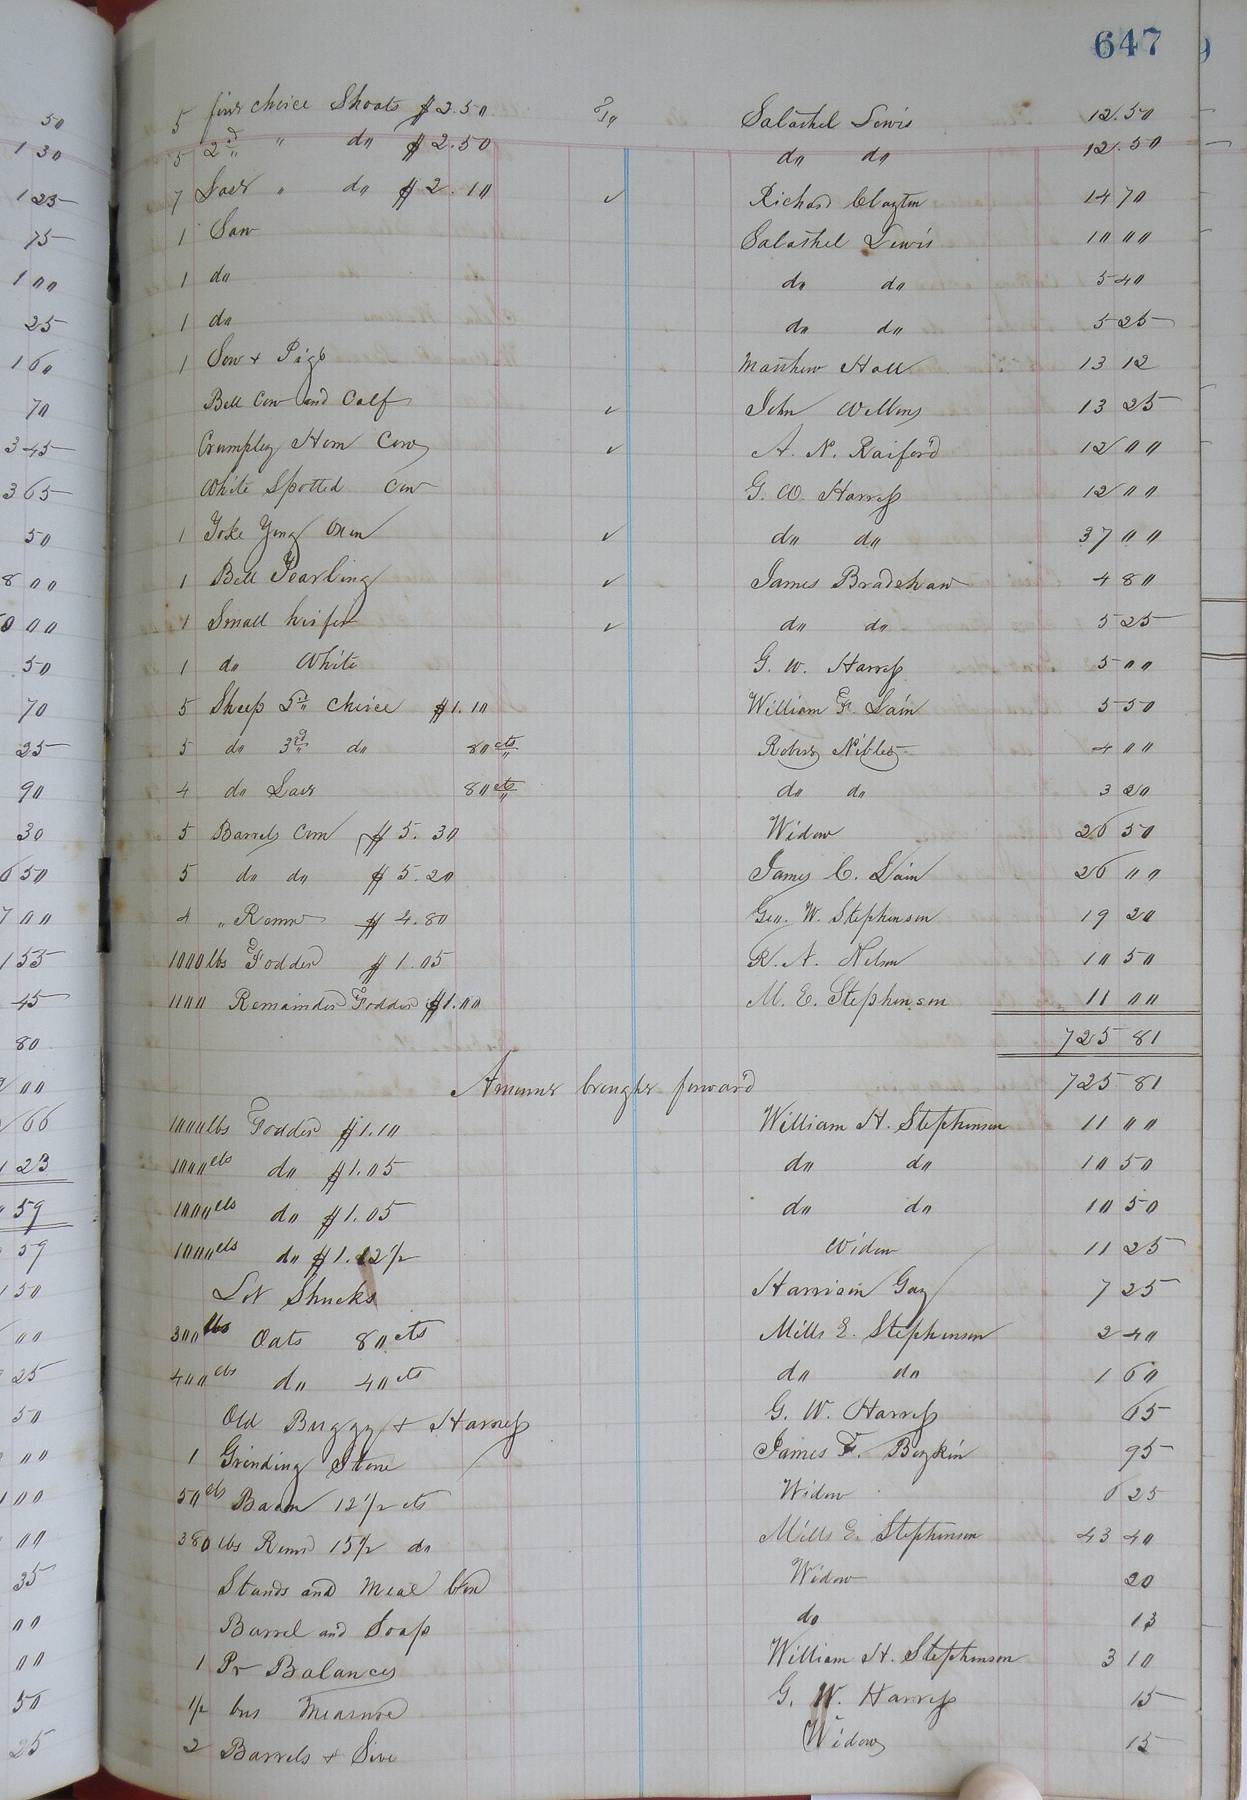 647
5 first choice Shoats $2.50 Salathel Lewis 12.50
5 2d " do $2.50 do do 12.50
7 Last " do $2.10 ✓ Richard Clayton 14 70
1 Sow Salathel Lewis 10 00
1 do do do 5 40
1 do do do 5 25
1 Sow + Pigs Matthew Hall 13 12
Bell Cow and Calf ✓ John 13 25
Crumpley Horn Cow ✓ A. N. Raiford 12 00
White Spotted Cow G. W. Harress 12 00
1 Yoke Yong Oxen ✓ do do 37 00
1 Bell Yearling ✓ James Bradshaw 4 80
1 Small heifer ✓ do do 5 25
1 do White G. W. Harress 5 00
5 Sheep choice $1.10 William F. Lain 5 50
5 do 3rd do 80 cts Robert Niblet 4 00
4 do Last 80 cts do do 3 20
5 Barrels Corn $5.30 Widow 26 50
5 do do $5.20 James C. Lain 26 00
4 " Remr $4.80 Geo. W. Stephenson 19 20
1000 lbs Fodder $1.05 R. A. Nelson 10 50
1100 Remainder Fodder $1.00 M. E. Stephenson 11 00
725 81
Amount brought forward 725 81
1000 lbs Fodder $1.10 William H. Stephenson 11 00
1000 lbs do $1.05 do do 10 50
1000 lbs do $1.05 do do 10 50
1000 lbs do $1.12 1/2 Widow 11 25
Lot Shucks Harrison Gay 7 25
300 lbs Oats 80 cts Mills E. Stephenson 2 40
400 lbs do 40 cts do do 1 60
Old Buggy + Harness G. W. Harress 65
1 Grinding Stone James F. Boykin 95
50 lbs Bacon 12 1/2 cts Widow 6 25
380 lbs Remd 15 1/2 do Mills E. Stephenson 43 40
Stands and Meal Widow 20
Barrel and Soap do 13
1 Pr Balances William H. Stephenson 3 10
1/2 bus Measure G. W. Harress 15
2 Barrels + Sive Widow 15